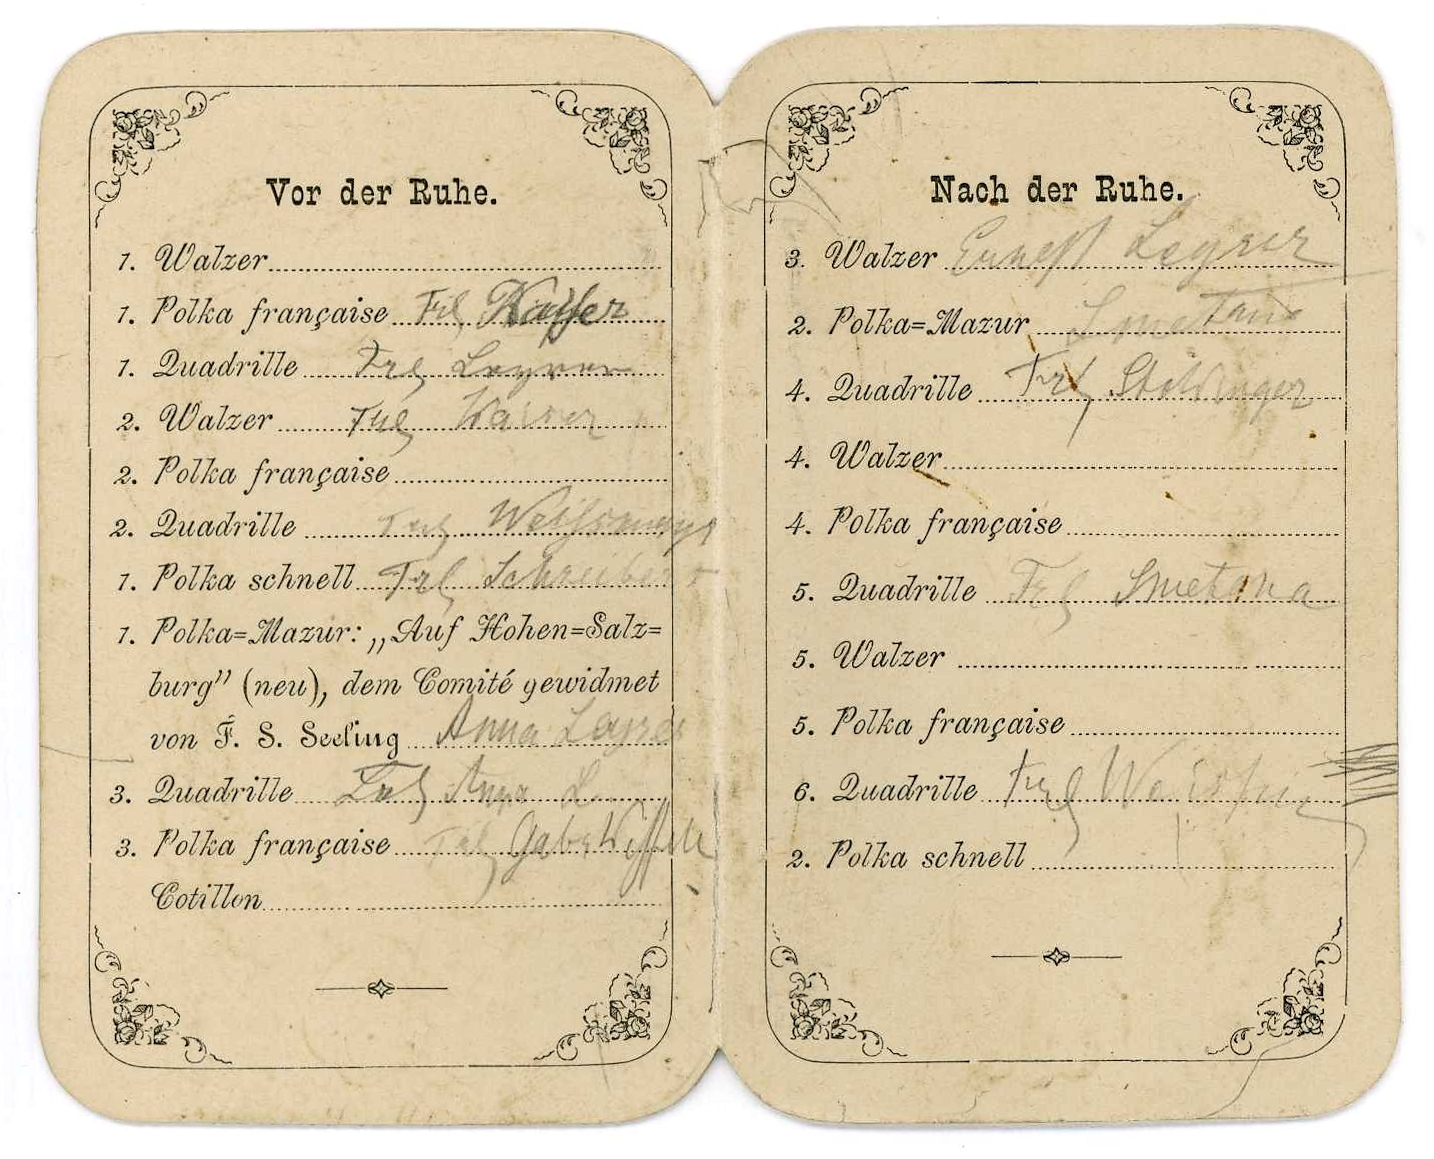 Vor der Ruhe.
1. Walzer
1. Polka française Frl Kaffer
1. Quadrille Frl
2. Walzer Frl
2. Polka française
2. Quadrille Frl
1. Polka schnell Frl Schreiber
1. Polka=Mazur: „Auf Hohen=Salz=
burg” (neu), dem Comité gewidmet
von F. S. Seeling Anna
3. Quadrille Frl Anna L
3. Polka française Frl
Cotillon
Nach der Ruhe.
3. Walzer Ernest
2. Polka=Mazur Smetana
4. Quadrille Frl
4. Walzer
4. Polka française
5. Quadrille Frl Smetana
5. Walzer
5. Polka française
6. Quadrille Frl
2. Polka schnell